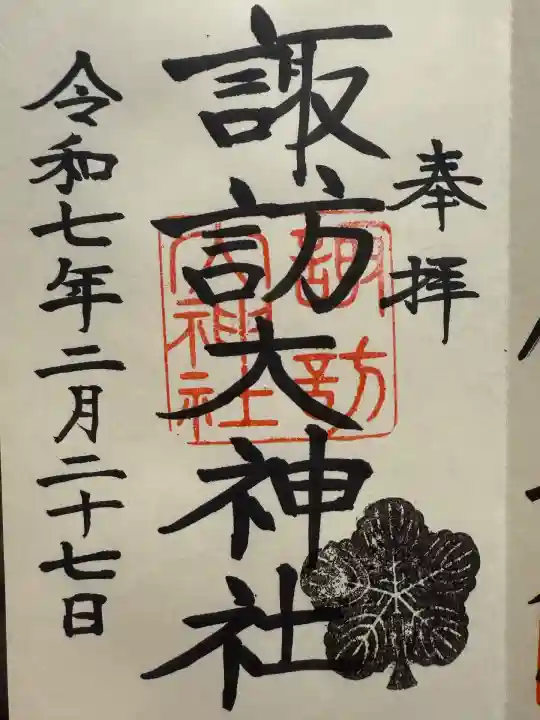 奉拝
諏訪大神社
諏訪
大神社
令和七年二月二十七日